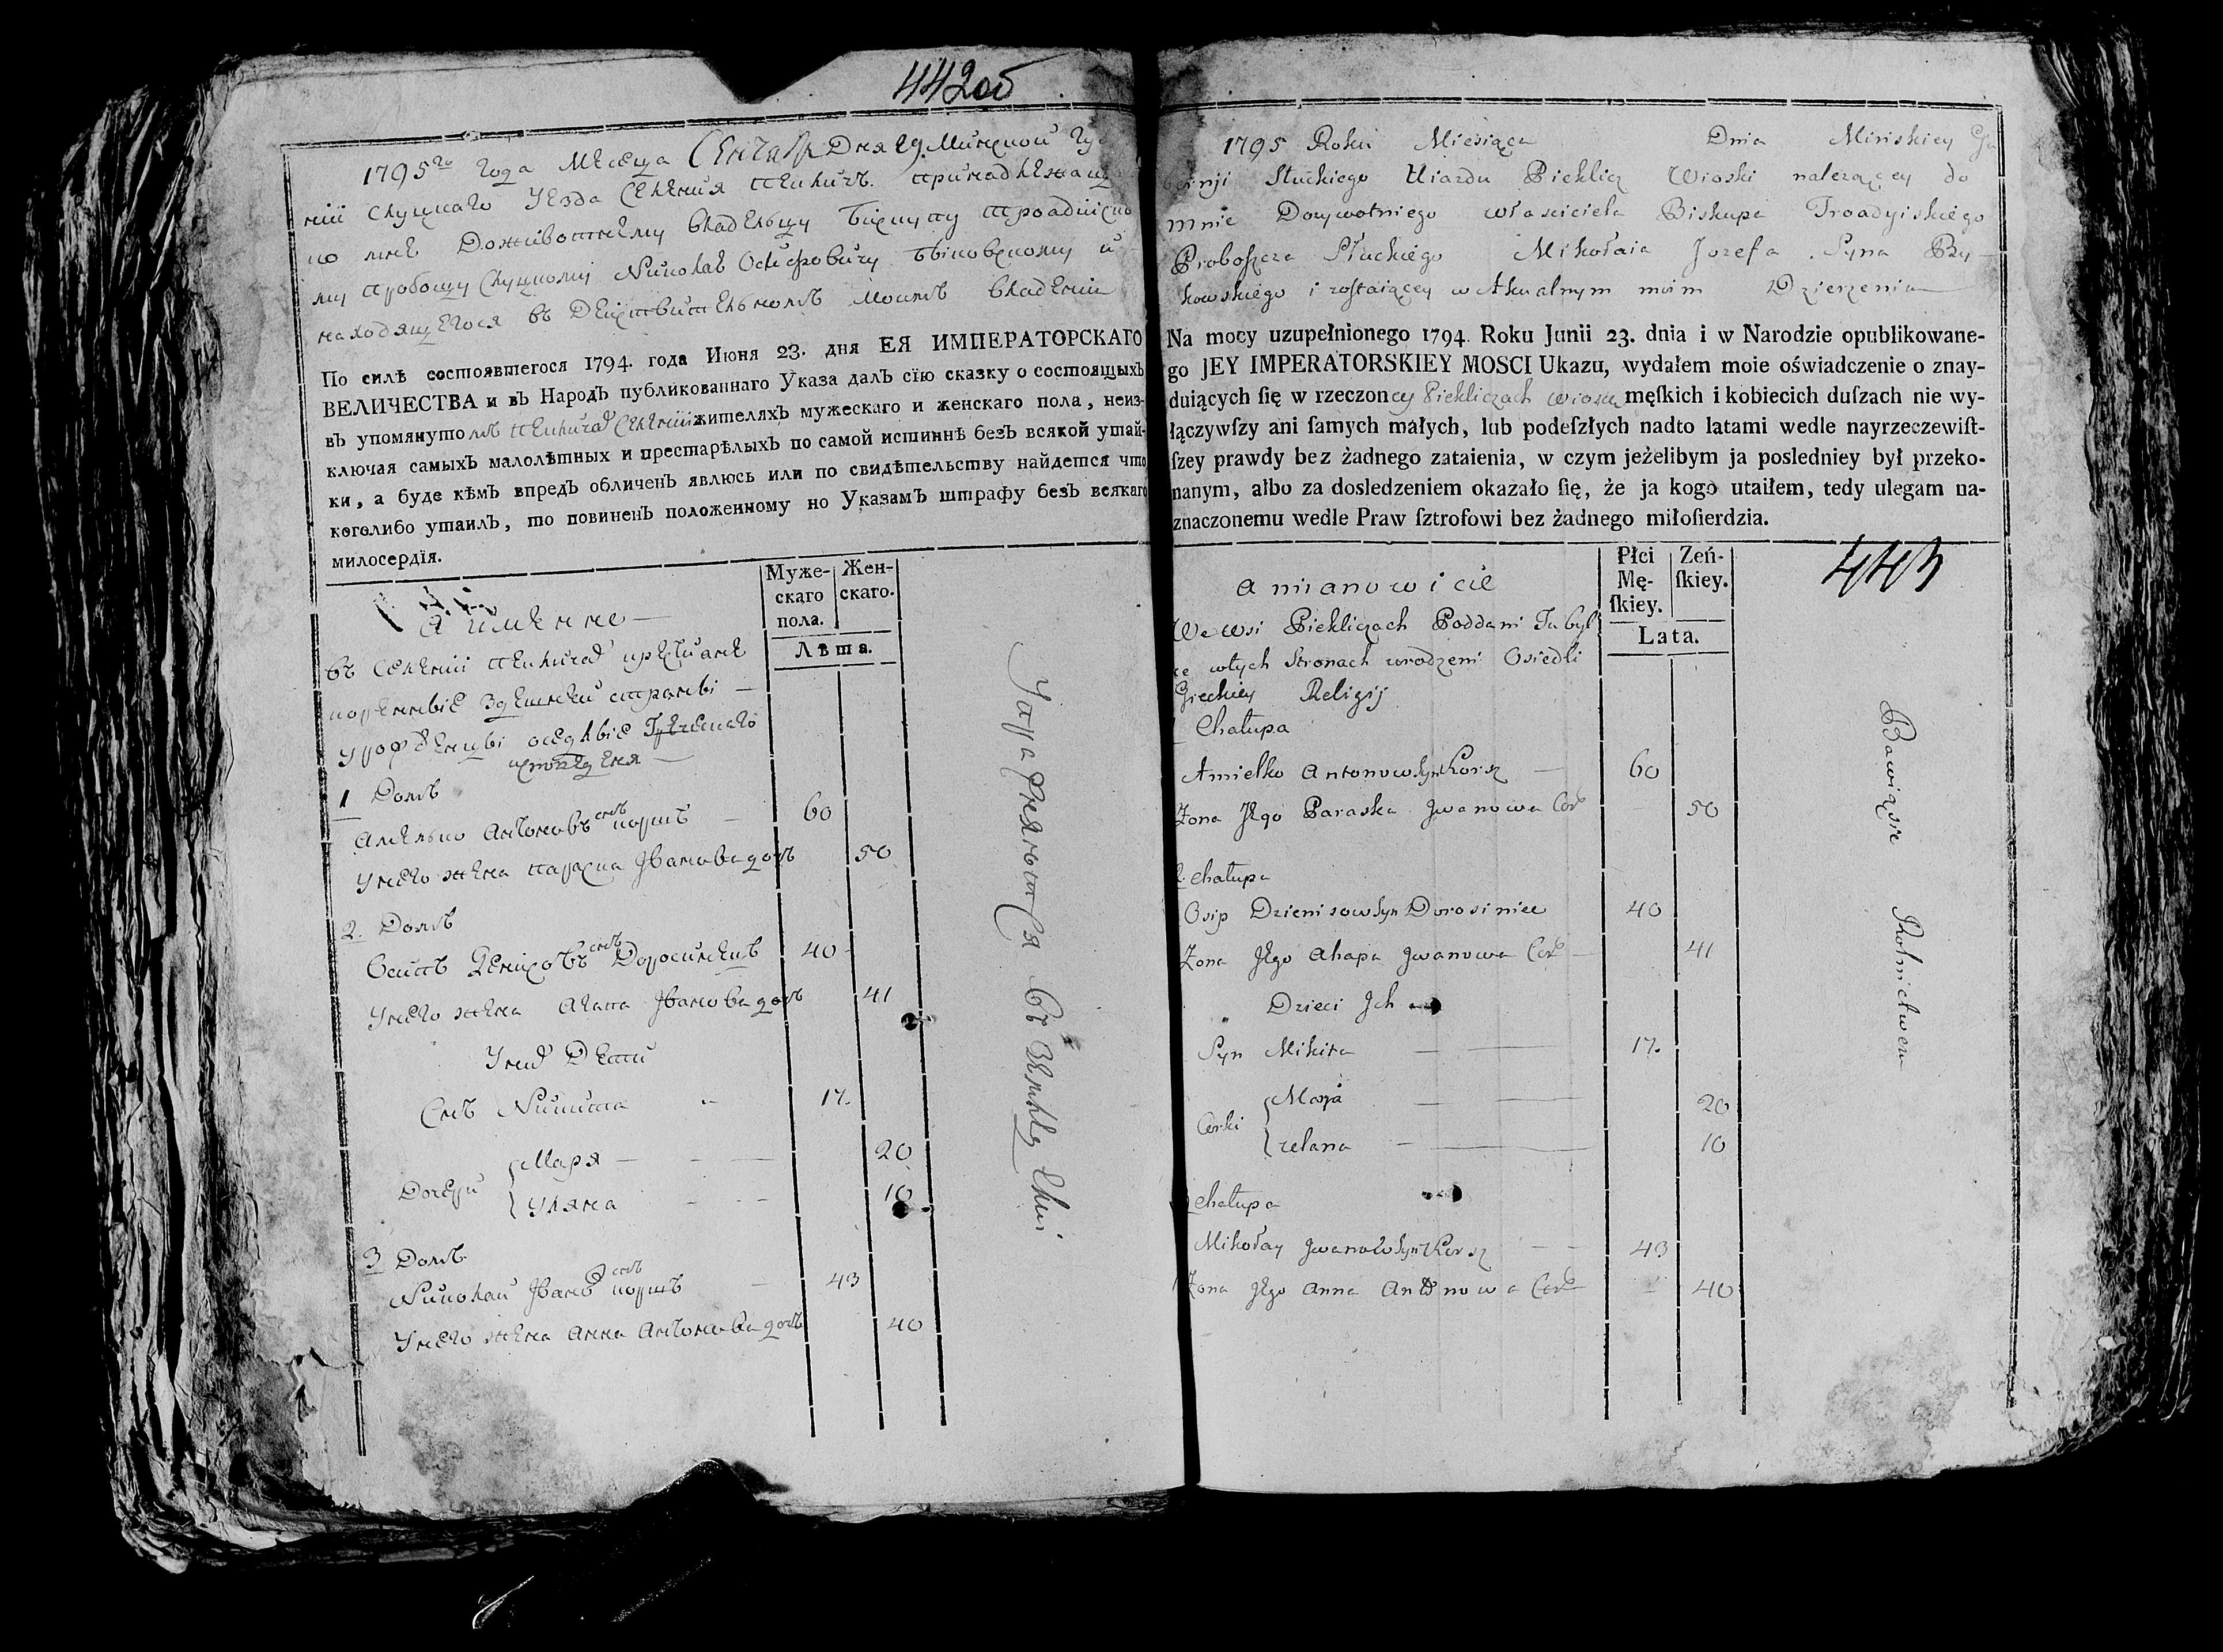 442об
1795го года месеца Сентабр Дня 29. Минской Гу
нiи Слуцкаго Уезда Селения Пекличъ. принадлежащ
по мне Доживотнему владелцу Бискупу Троадийско
му пробощу Слуцкому Николаю Осифовичу Быковскому и
находящегося въ Действительномъ моемъ владении
По силѣ состоявшегося 1794. года Июня 23. дня ЕЯ ИМПЕРАТОРСКАГО
ВЕЛИЧЕСТВА и въ Народъ публикованнаго Указа далъ сїю сказку о состоящихъ
въ упомянутомъ Пекличах Селении жителяхъ мужескаго и женскаго пола, неиз-
ключая самыхъ малолѣтных и престарѣлыхъ по самой истиннѣ безъ всякой утай-
ки, а буде кѣмъ впредъ обличенъ явлюсь или по свидѣтельству найдется что
коголибо утаилъ, то повиненъ положенному по Указамъ штрафу безъ всякаго
милосердїя.
Муже-скаго пола. Жен-скаго.
Лѣта.
А именне
въ Селении Пекличах крестиане
коренные здешней страны
урожденцы оседлые Греческого
исповедения
1 Домъ
Амелько Антоновъ снъ Коржъ 60
У него жена Параска Иванова дочъ 50
2. Домъ
Осипъ Денисовъ снъ Доросинецъ 40
У него жена Агапа Иванова дочъ 41
У них Дети
Снъ Никита 17.
Дочери Маря 20
Уляна 10
3 Домъ
Николай Иванов снъ Коржъ 43
У него жена Анна Антонова дочъ 40
Упражняются въ земледелии
1795 Roku Miesiąca Dnia Minskiey Gu
bernji Słuckiego Uiazdu Pieklicz Wioski należącey do
mnie Dożywotniego własciciela Biskupa Troadyiskiego
Proboszcza Słuckiego Mikołaia Jozefa Syna By-
kowskiego i zostaiącey w Aktualnym moim Dzierzeniu
Na mocy uzupełnionego 1794. Roku Junii 23. dnia i w Narodzie opublikowane-
go JEY IMPERATORSKIEY MOSCI Ukazu, wydałem moie oświadczenie o znay-
duiących ſię w rzeczoney Piekliczach wiosce męſkich i kobiecich duſzach nie wy-
łączywſzy ani ſamych małych, lub podeſzłych nadto latami wedle nayrzeczewiſt-
ſzey prawdy bez żadnego zataienia, w czym jeżelibym ja posledniey był przeko-
nanym, albo za dosledzeniem okazało ſię, że ja kogo utaiłem, tedy ulegam na-
znaczonemu wedle Praw ſztrofowi bez żadnego miłoſierdzia.
Płci Mę-ſkiey. Zeń-ſkiey.
Lata.
443
a mianowicie
We wsi Piekliczach Poddani Tubyl
ce w tych Stronach urodzeni Osiedli
Greckiey Religij
1 Chałupa
Amielko Antonow Syn Korsz 60
Żona Jego Paraska Jwanowa Cor 50
2. Chałupa
Osip Dzienisow Syn Dorosiniec 40
Żona Jego Ahapa Jwanowa Cor 41
Dzieci Jch
Syn Mikita 17.
Corki Marja 20
Ulana 10
Chałupa
Mikołay Jwanow Syn Korsz 43
Żona Jego Anna Antonowa Cor 40
Bawiąsie Rolnictwem